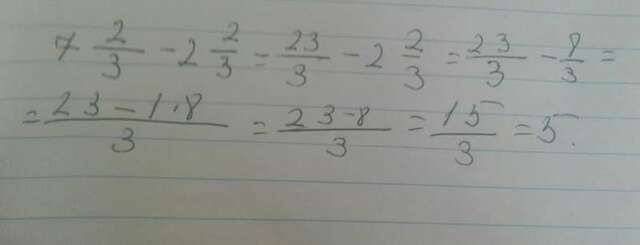 7 2/3 - 2 2/3 = 23/3 - 2 2/3 = 23/3 - 8/3 =
= (23 - 1·8)/3 = (23-8)/3 = 15/3 = 5.